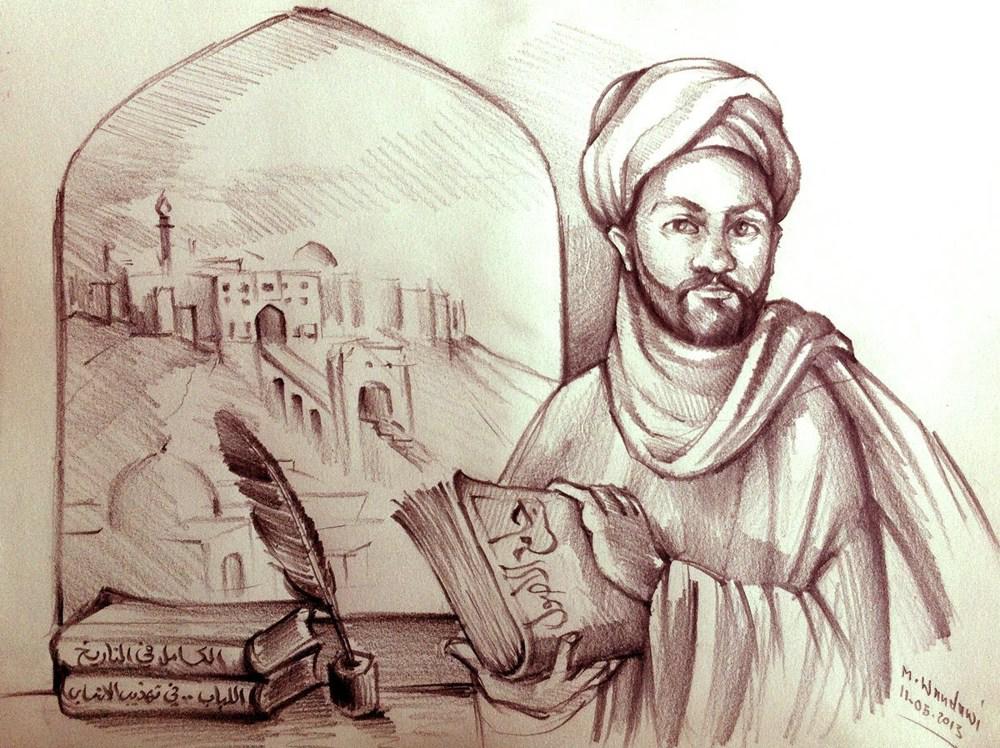 الكامل في التاريخ
اللباب .. في تهذيب الانساب
M. Wandawi
11.05.2013